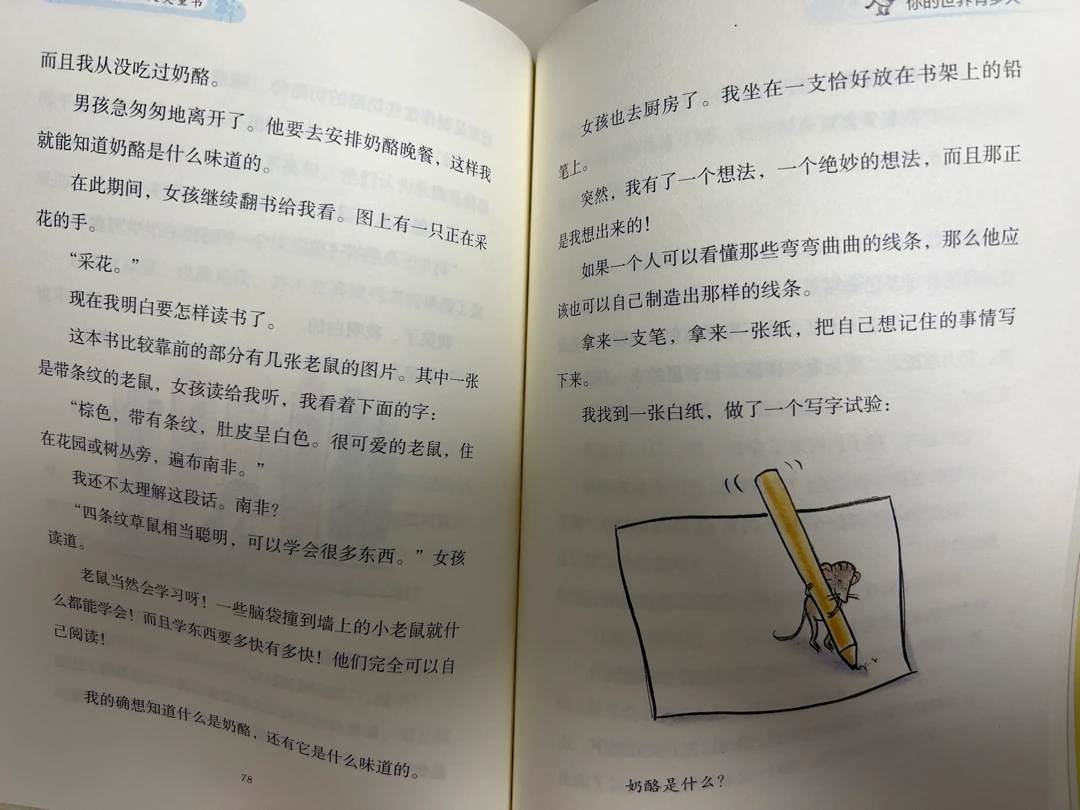 而且我从没吃过奶酪。
男孩急匆匆地离开了。他要去安排奶酪晚餐，这样我
就能知道奶酪是什么味道的。
在此期间，女孩继续翻书给我看。图上有一只正在采
花的手。
“采花。”
现在我明白要怎样读书了。
这本书比较靠前的部分有几张老鼠的图片。其中一张
是带条纹的老鼠，女孩读给我听，我看着下面的字：
“棕色，带有条纹，肚皮呈白色。很可爱的老鼠，住
在花园或树丛旁，遍布南非。”
我还不太理解这段话。南非？
“四条纹草鼠相当聪明，可以学会很多东西。”女孩
读道。
老鼠当然会学习呀！一些脑袋撞到墙上的小老鼠就什
么都能学会！而且学东西要多快有多快！他们完全可以自
己阅读！
我的确想知道什么是奶酪，还有它是什么味道的。
78
你的世界有多大
女孩也去厨房了。我坐在一支恰好放在书架上的铅
笔上。
突然，我有了一个想法，一个绝妙的想法，而且那正
是我想出来的！
如果一个人可以看懂那些弯弯曲曲的线条，那么他应
该也可以自己制造出那样的线条。
拿来一支笔，拿来一张纸，把自己想记住的事情写
下来。
我找到一张白纸，做了一个写字试验：
奶酪是什么？